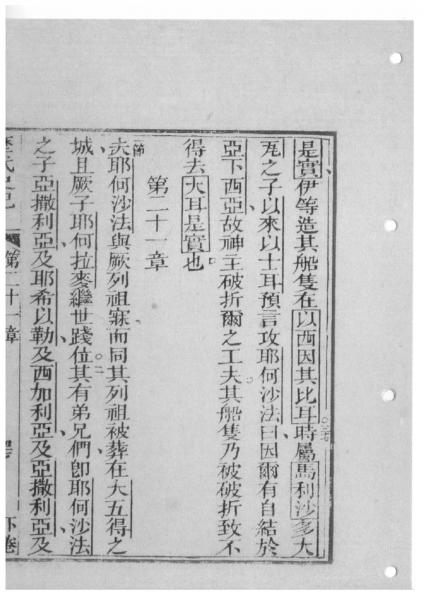 是實伊等造其船隻在以西因其比耳時屬馬利沙多大
之子以來以士耳預言攻耶何沙法曰因爾有自結於
亞下西亞故神主破折爾之工夫其船隻乃被破折致不
得去大耳是實也
第二十一章
夫耶何沙法與厥列祖寐而同其列祖被葬在大五得之
城且厥子耶何拉麥繼世踐位其有弟兄們卽耶何沙法
之子亞撒利亞及耶希以勒及西加利亞及亞撒利亞及
第二十一章 下卷